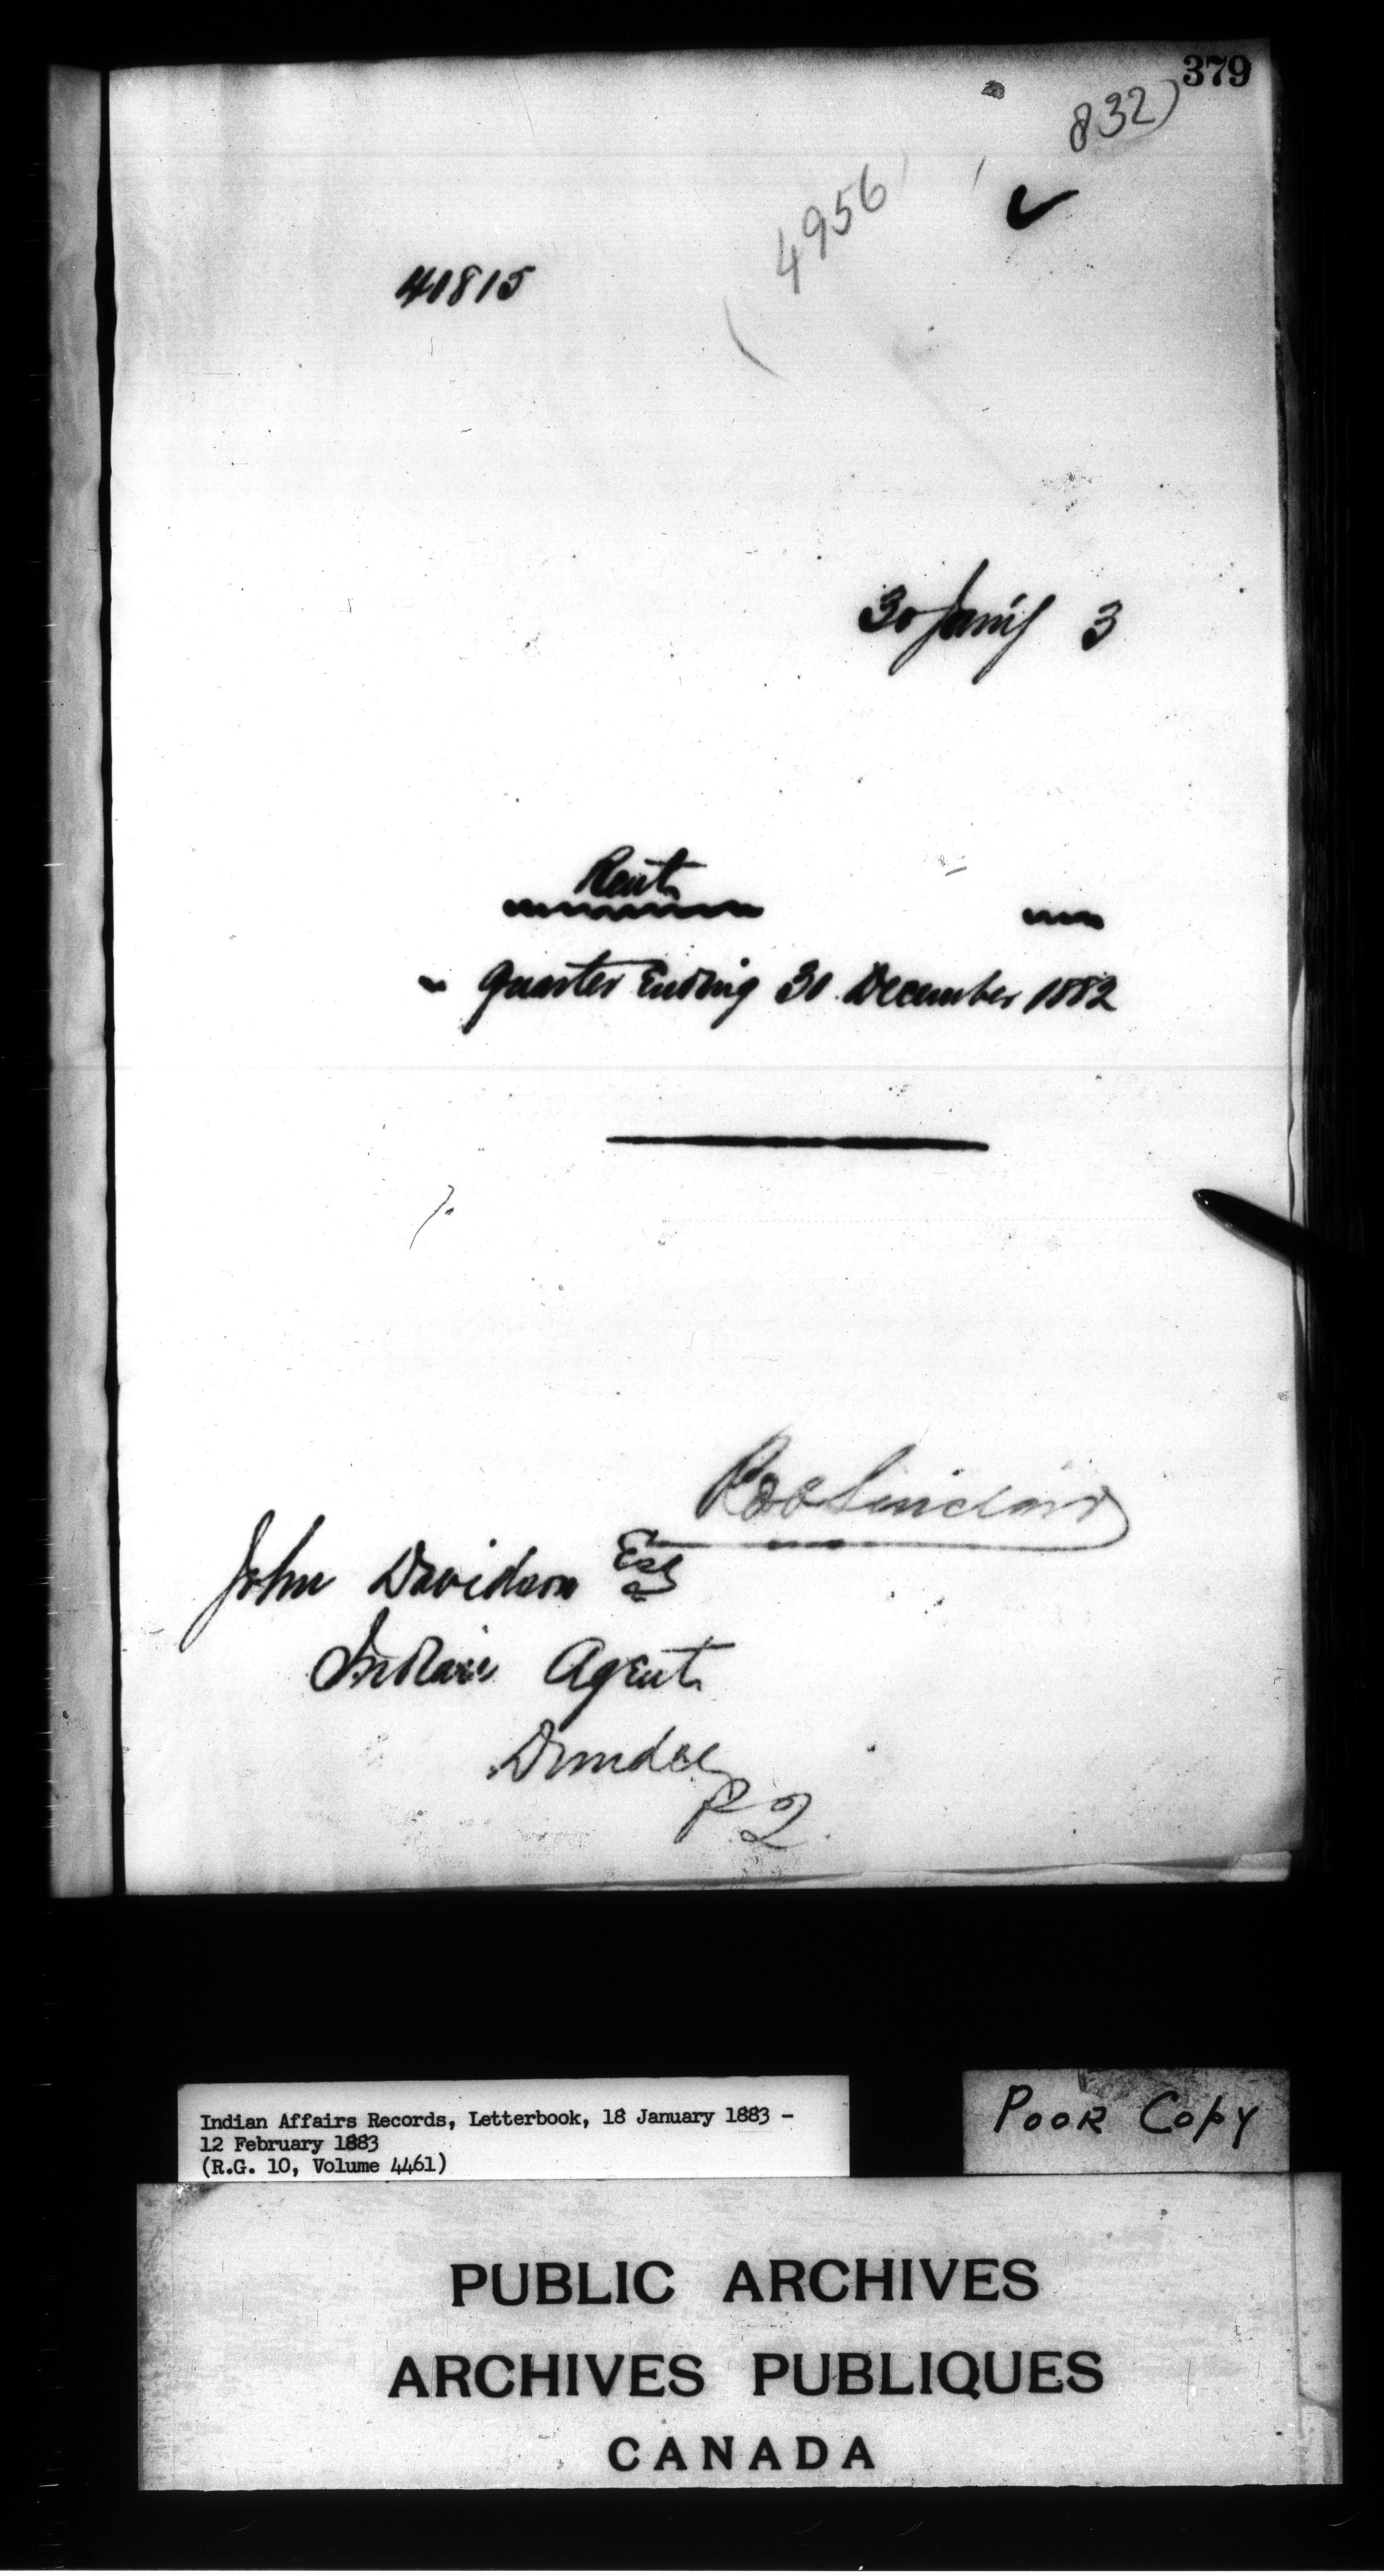 379
832)
4956
41815
30 Jan'y 3
Rent
Quarter Ending 30 December 1882
Rob Sinclair
John Davidson Esq
Indian Agent
Dundee
P 2.
Indian Affairs Records, Letterbook, 18 January 1883 -
12 February 1883
(R.G. 10, Volume 4461)
POOR COPY
PUBLIC ARCHIVES
ARCHIVES PUBLIQUES
CANADA